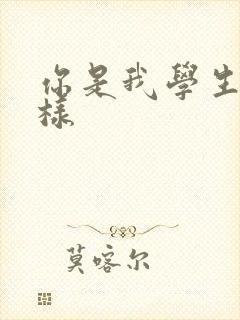 你是我學生
樣
莫喀尔